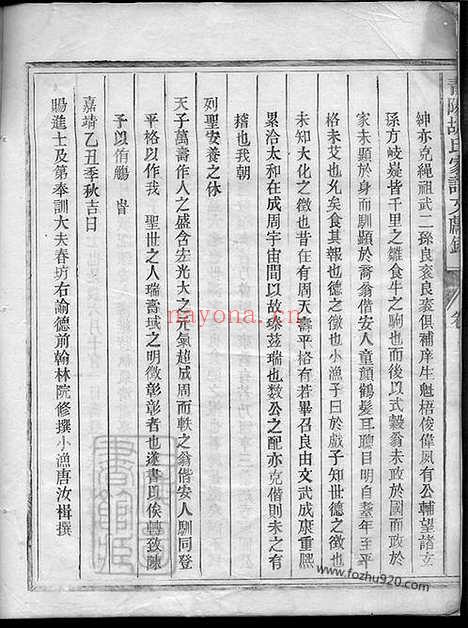 青陽胡氏家譜文獻錄
紳亦克繩祖武二孫良袞良衮俱補庠生魁梧俊偉夙有公輔望諸玄
孫方岐嶷皆千里之雛食牛之駒也而後以式穀翁未政於國而政於
家未顯於身而馴顯於裔翁偕安人童顏鶴髮耳聰目明自耋年至平
格未艾也允矣食其報也德之徵也小漁子曰於戲予知世德之徵也
未知大化之徵也昔在有周天壽平格有若畢召良由文武成康重熙
累洽太和在成周宇宙間以故臻茲瑞也數公之配亦克偕則未之有
稽也我朝
列聖安養之休
天子萬壽作人之盛含宏光大之元氣超成周而軼之翁偕安人馴同登
平格以作我 聖世之人瑞壽域之明徵彰彰者也遂書以俟轉致陳
予以侑觴 旹
嘉靖乙丑季秋吉日
賜進士及第奉訓大夫春坊右諭德前翰林院修撰小漁唐汝楫撰
nayona.cn
www.fozhu920.com